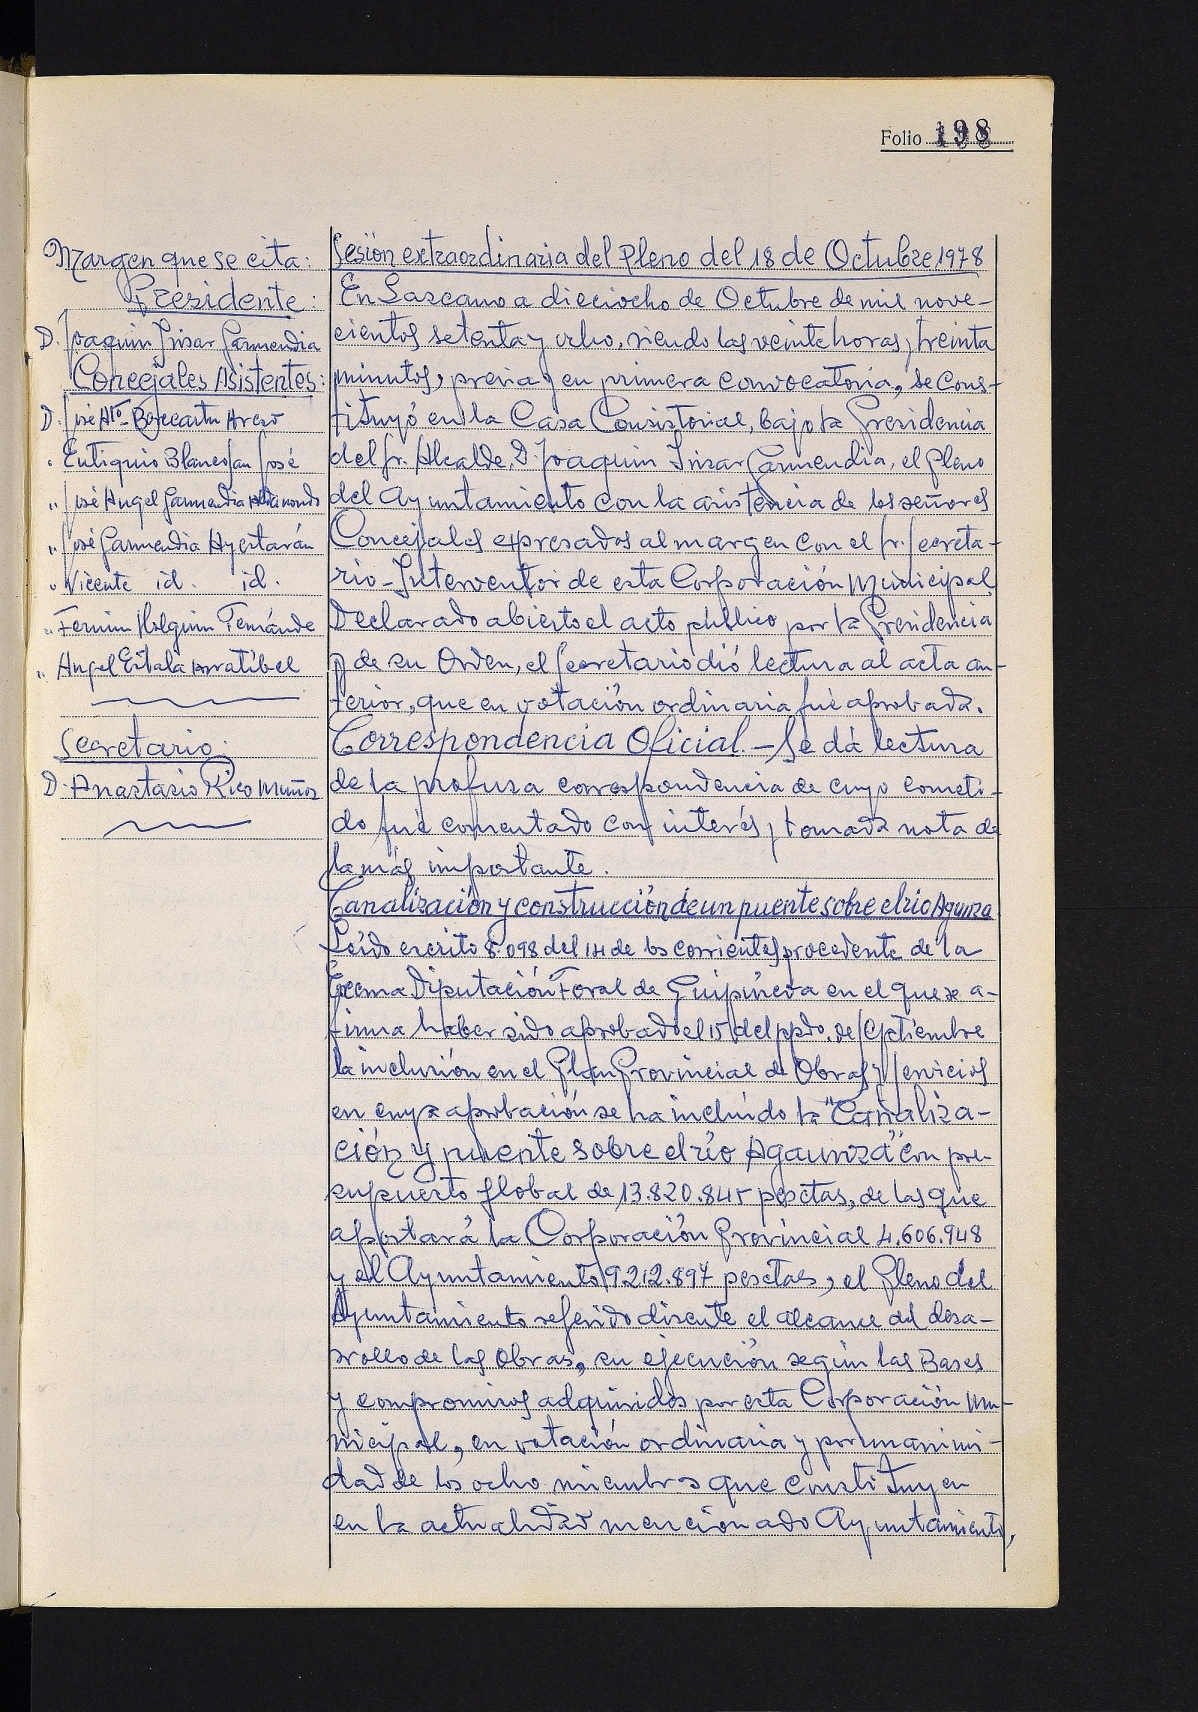 Folio 198
Margen que se cita:
Presidente:
D. Joaquin Insar Garmendia
Concejales Asistentes:
D. José Ato. Bozecartu Areso
" Eutiquio Blanco San José
" José Angel Garmendia Aldamondo
" José Garmendia Ayestarán
" Vicente id. id.
" Fermin Holguin Fernánde
" Angel Eztala Arratibel
Secretario:
D. Anastasio Rico Muñoz
Sesión extraordinaria del Pleno del 18 de Octubre 1978
En Lazcano a dieciocho de Octubre de mil nove-
cientos setenta y ocho, siendo las veinte horas y treinta
minutos, previa y en primera convocatoria, se cons-
tituyó en la Casa Consistorial, bajo la Presidencia
del Sr. Alcalde, D. Joaquin Insar Garmendia, el Pleno
del Ayuntamiento con la asistencia de los señores
Concejales expresados al margen con el Sr. Secreta-
rio-Interventor de esta Corporación Municipal.
Declarado abierto el acto público por la Presidencia
y de su Orden, el Secretario dió lectura al acta an-
terior, que en votación ordinaria fué aprobada.
Correspondencia Oficial.- Se dá lectura
de la profusa correspondencia de cuyo cometi-
do fué comentado con interés y tomada nota de
la más importante.
Canalización y construcción de un puente sobre el rio Agunza
Leído escrito 8.098 del 14 de los corrientes procedente de la
Excma Diputación Foral de Guipúzcoa en el que se a-
firma haber sido aprobado el 15 del ppdo. de Septiembre
la inclusión en el Plan Provincial de Obras y Servicios
en cuya aprobación se ha incluído la "Canaliza-
ción y puente sobre el río Agaunza" con pre-
supuesto global de 13.820.845 pesetas, de las que
aportará la Corporación Provincial 4.606.948
y el Ayuntamiento 9.212.897 pesetas, el Pleno del
Ayuntamiento referido discute el alcance del desa-
rrollo de las Obras, su ejecución según las Bases
y compromisos adquiridos por esta Corporación Mu-
nicipal, en votación ordinaria y por unanimi-
dad de los ocho miembros que constituyen
en la actualidad mencionado Ayuntamiento,